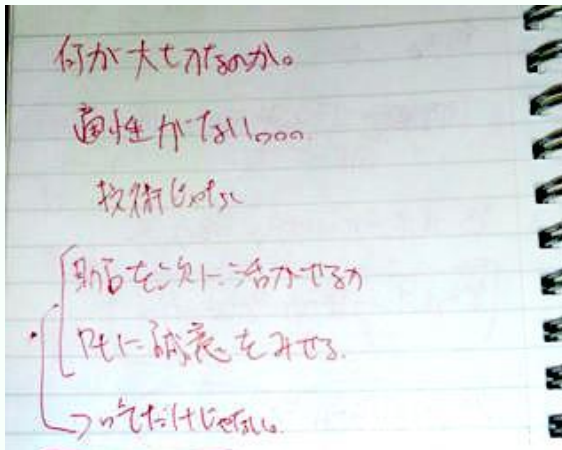 何が大切なのか。
適性がない。。。
技術じゃない
を次に活かせるか
に誠意をみせる。
だけじゃない。